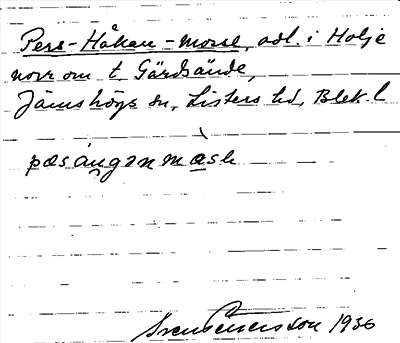 Pers-Håkan-mosse, odl. i Holje
norr om t. Gärdsände,
Jämshögs sn, Listers hd, Blek. l
pæsåŋganmasə
1936